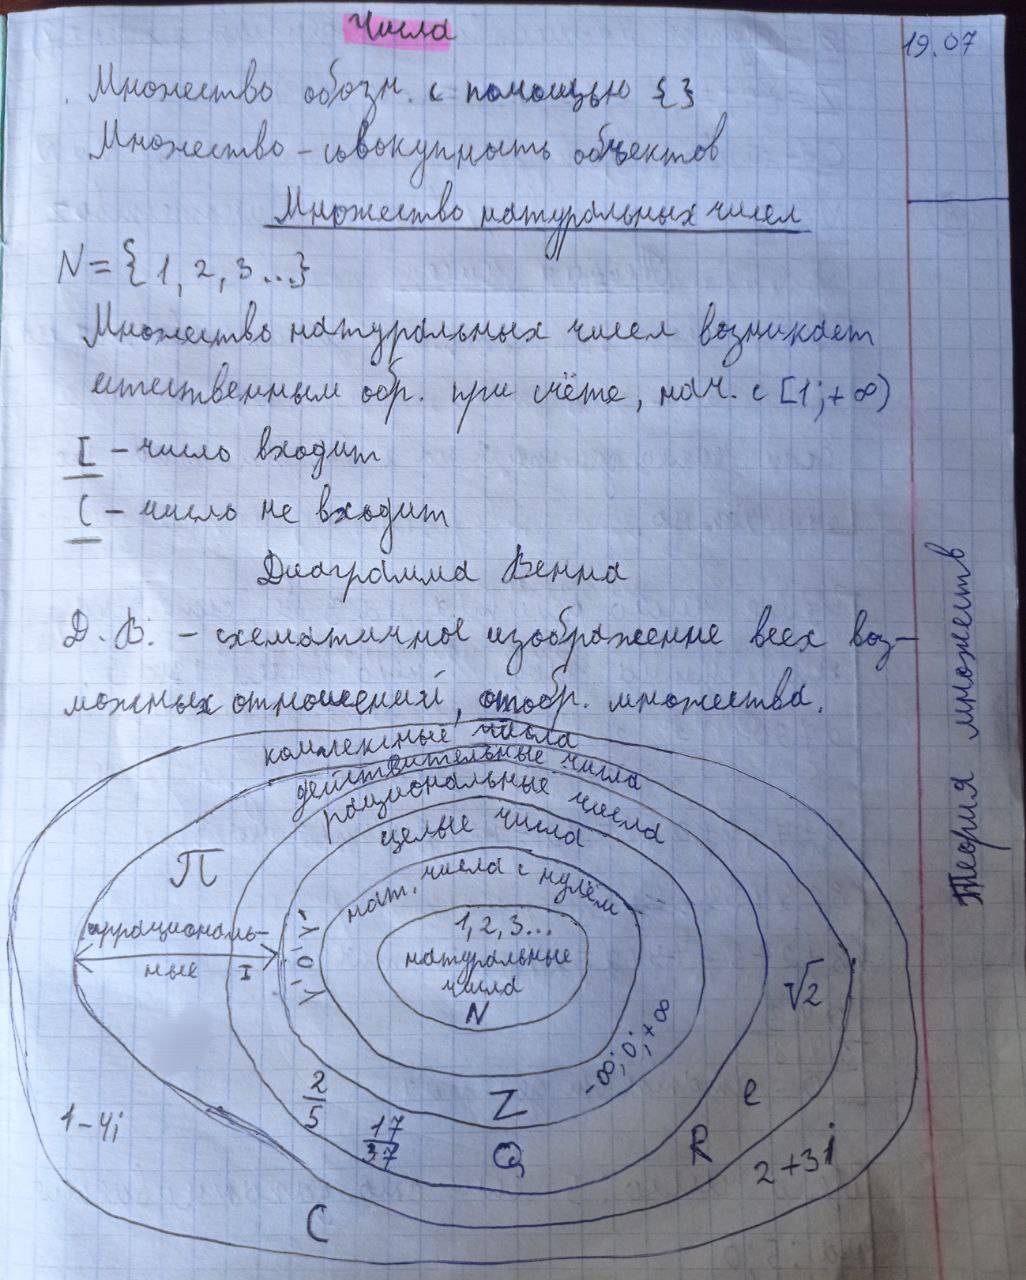 Числа
19.07
Множество обозн. с помощью { }
Множество - совокупность объектов
Множество натуральных чисел
N = { 1, 2, 3 ...}
Множество натуральных чисел возникает
естественным обр. при счёте, нач. с [1; +∞)
[ - число входит
( - число не входит
Диаграмма Венна
Д. В. - схематичное изображение всех воз-
можных отношений, отобр. множества.
Теория множеств
комплексные числа
действительные числа
рациональные числа
целые числа
нат. числа с нулём
1, 2, 3...
натуральные
числа
N
π
иррациональ-
ные I
√2
-∞; 0; +∞
2/5
17/37
Z
Q
R
e
1-4i
2+3i
C